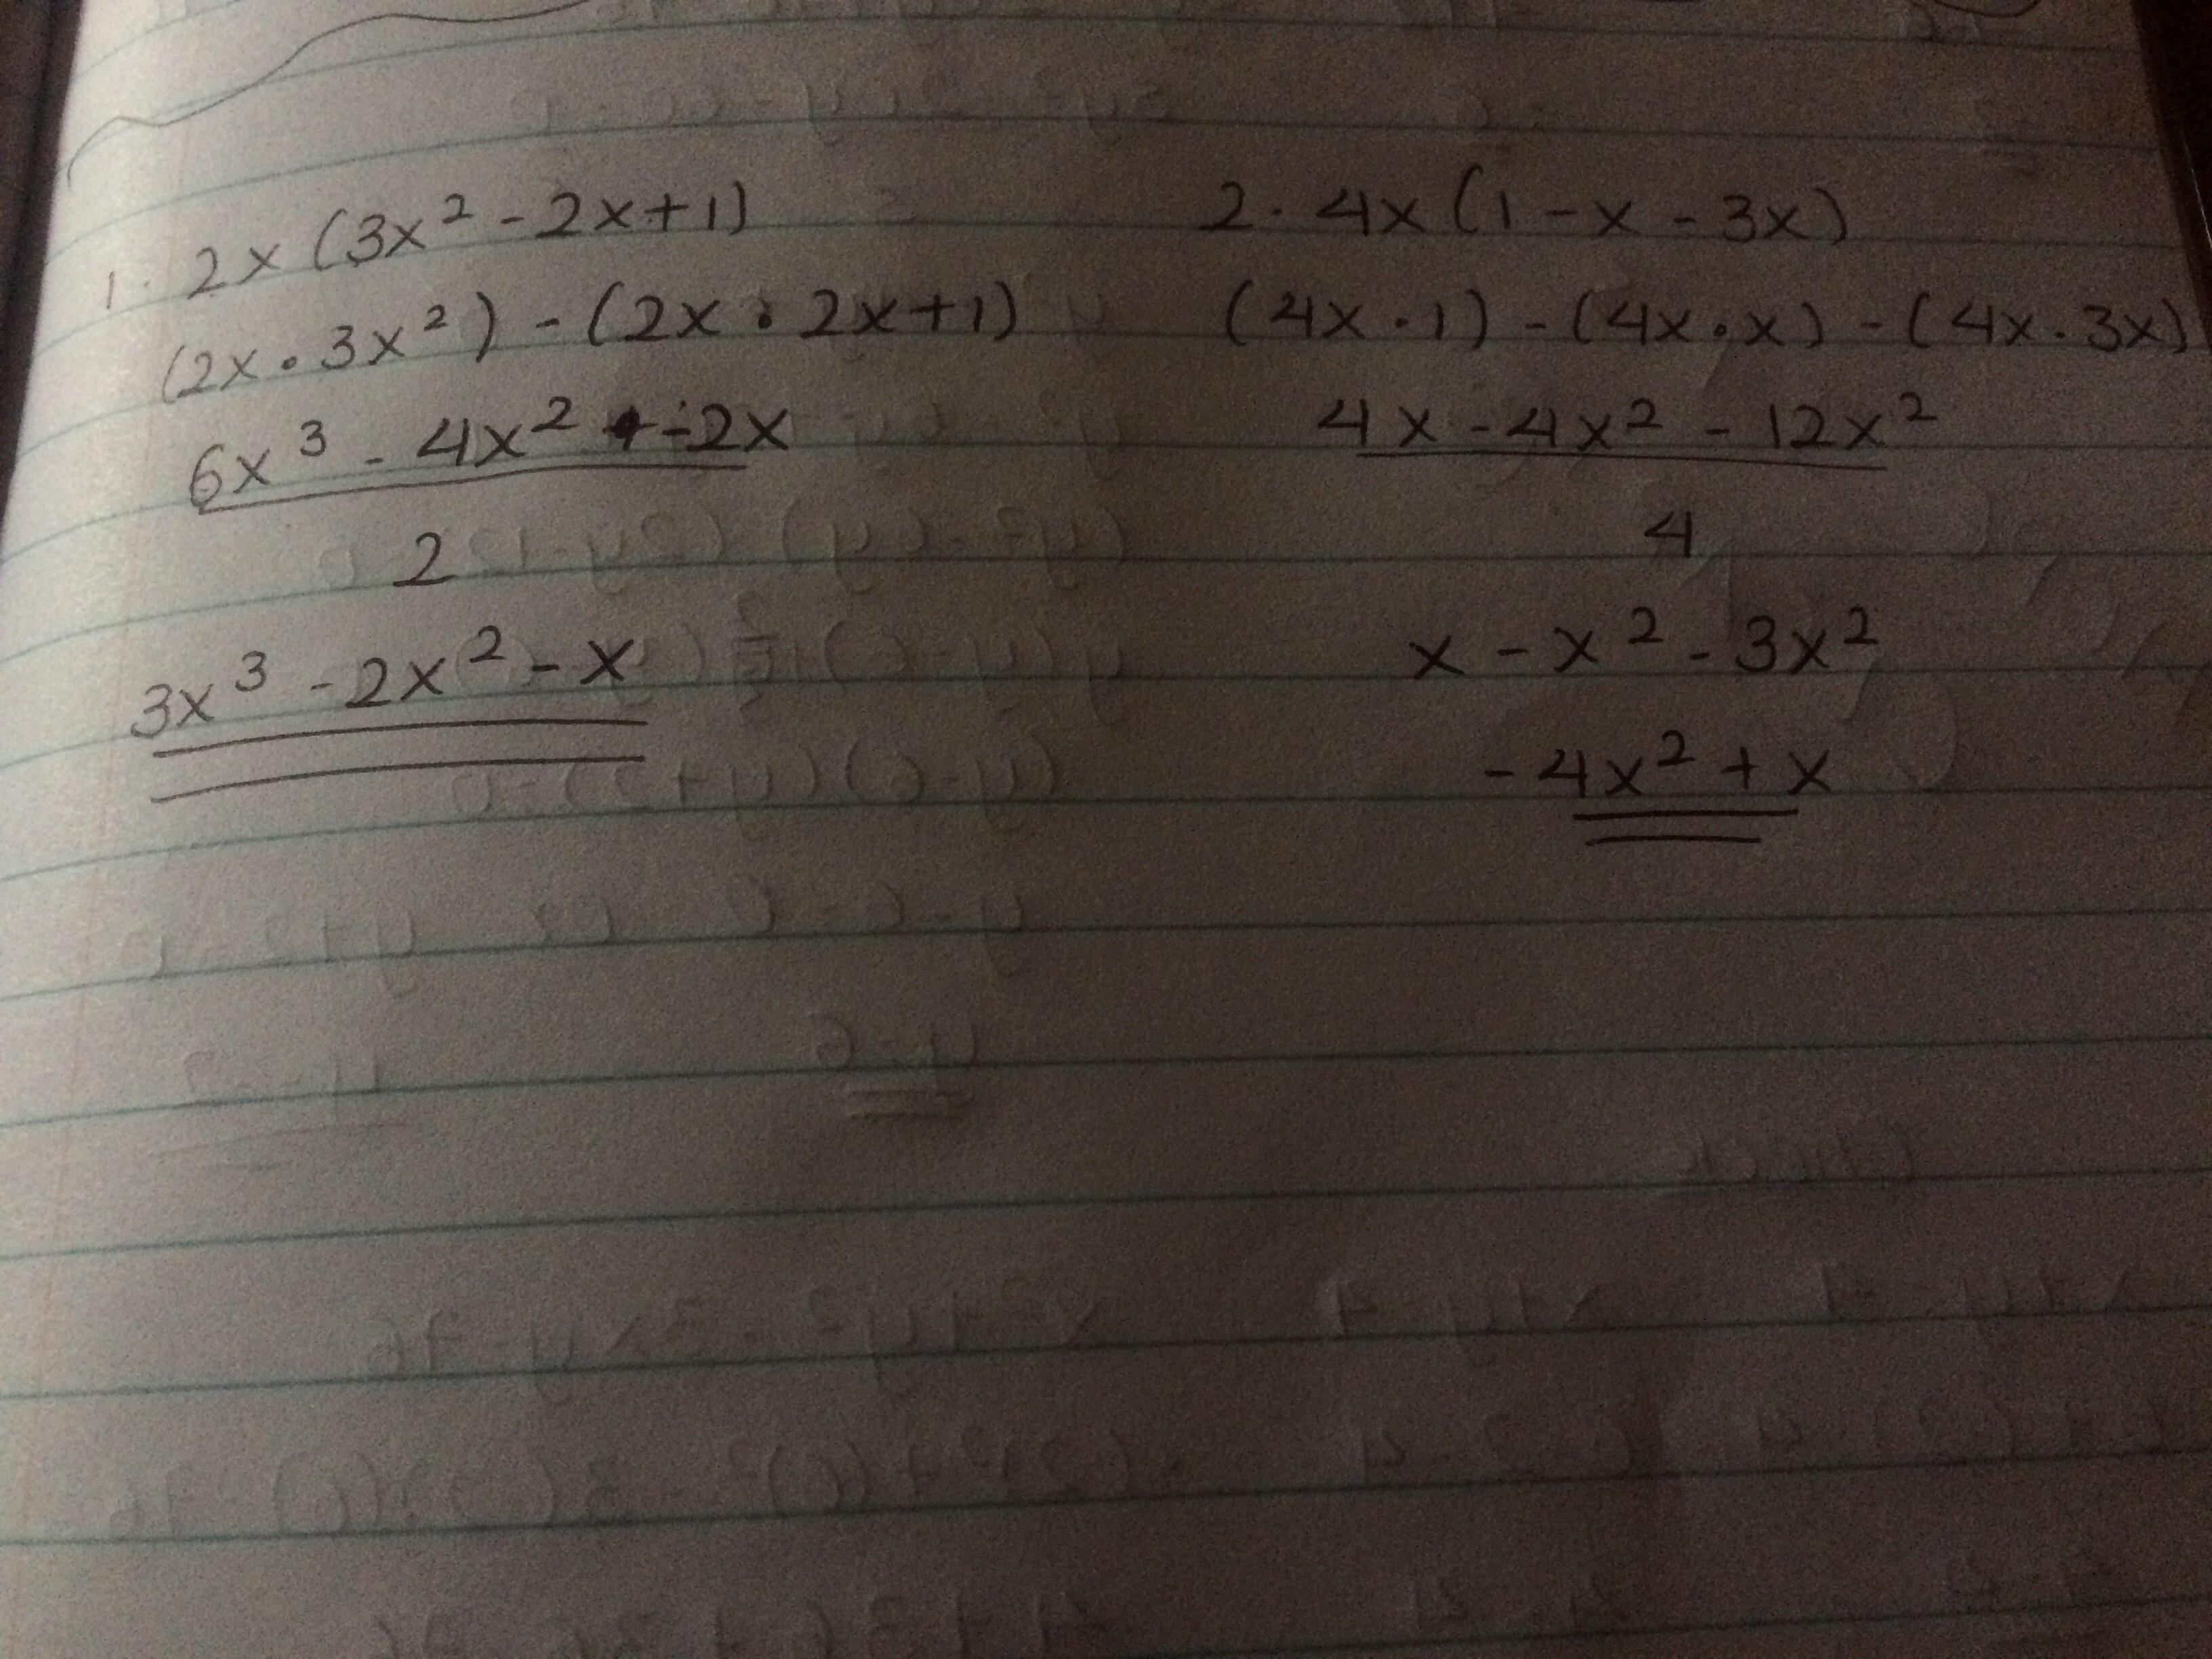 1. 2x (3x² - 2x + 1)
(2x • 3x²) - (2x • 2x + 1)
6x³ - 4x² - 2x
2
3x³ - 2x² - x
2. 4x (1 - x - 3x)
(4x • 1) - (4x • x) - (4x • 3x)
4x - 4x² - 12x²
4
x - x² - 3x²
- 4x² + x